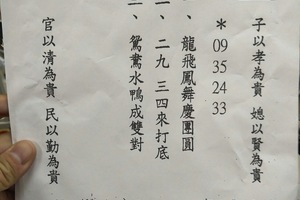 子以孝為貴 媳以賢為貴
*09 35 24 33
、龍飛鳳舞慶團圓
二、二九 三四來打底
、鴛鴦水鴨成雙對
官以清為貴 民以勤為貴